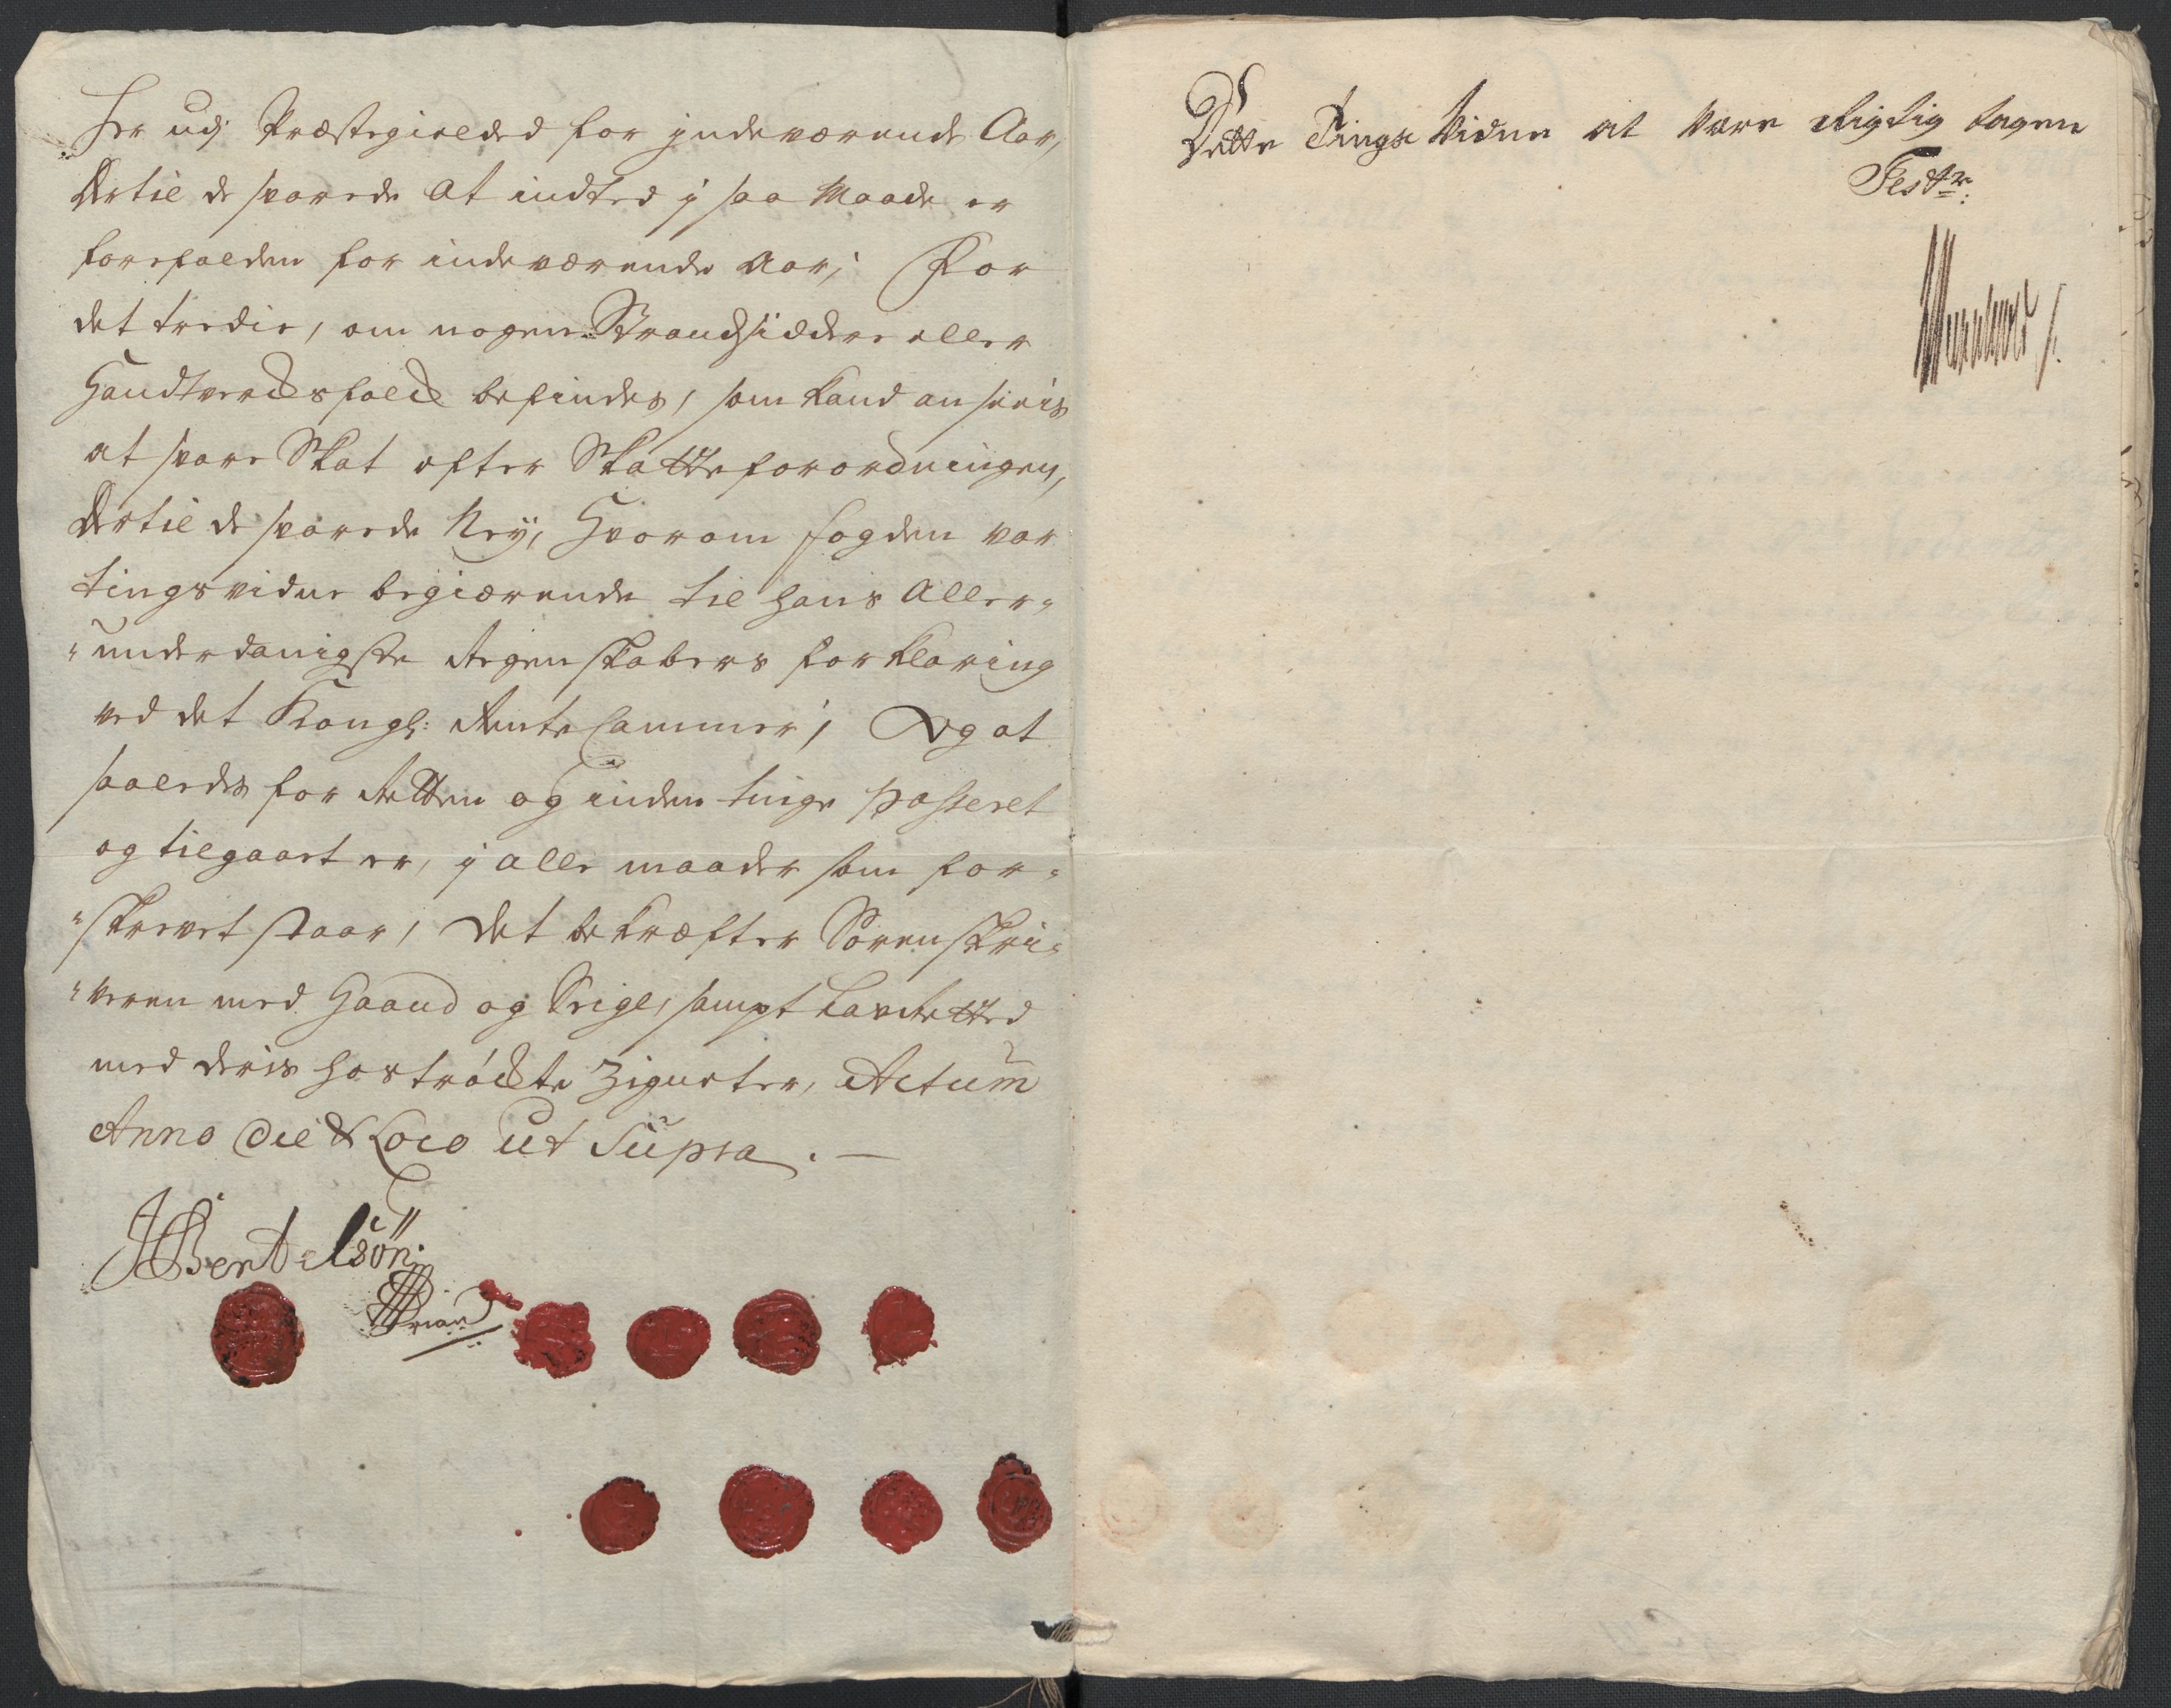 her udj Præstegielded for jndeværende Aar,
Dertil de svarede At indted j saa Maade er
forefalden for indeværende Aar; For
det tredie, om nogen Strandsiddere eller
Handtverchsfolch befindes, som kand ansees
at svare Skat efter Skatteforordningen,
Dertil de svarede Neÿ, Hvorom fogden var
tingsvidne begiærende til hans Aller-
underdanigste Regenskabers forklaring
ved det Kongl: RenteCammer; Og at
saaledes for Retten og inden tinge passeret
og tilgaaet er, j alle maader som for-
skrevet staar, Det bekræfter Sorenskri-
veren med Haand og Seigl, sampt Lauretted
med deris hostrôckte Zigneter, Actum
Anno Die & Loco Ut Supra. —
JBertelsön
Dette Tings Vidne at Være Rigtig tagen
Test: